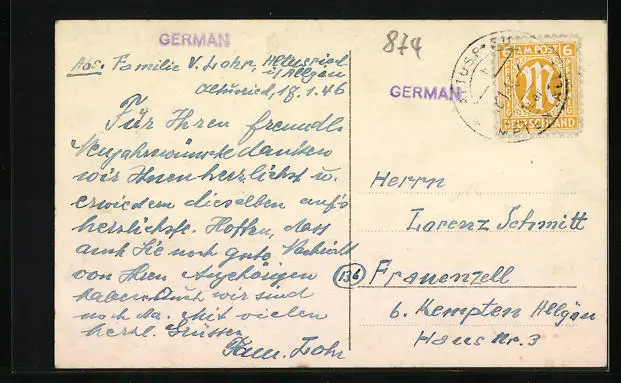 GERMAN
874
Abs. Familie v. Lohr, Altusried
i/Allgäu
Altusried, 17.1.46
Für Ihren freundl.
Neujahrswünsche danken
wir Ihnen herzlichst u.
erwiedern dieselben aufs
herzlichste. Hoffen, dass
auch Sie noch gute Nachricht
von Ihren Angehörigen
haben. Auch wir sind
noch da. Mit vielen
herzl. Grüssen
Fam. Lohr
GERMAN
AM POST 6
DEUTSCHLAND
Herrn
Lorenz Schmitt
(13b) Frauenzell
b. Kempten Allgäu
Haus Nr. 3